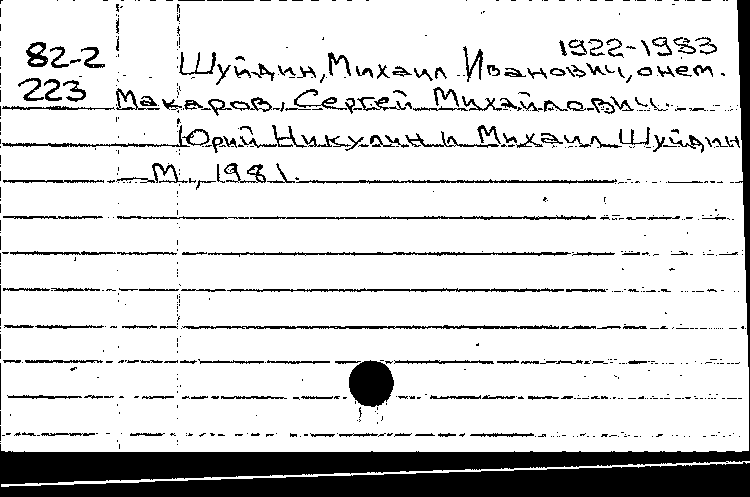 1922-1983
82-2 Шуйдин, Михаил Иванович, о нем.
223 Макаров, Сергей Михайлович.
Юрий Никулин и Михаил Шуйдин
— М., 1981.